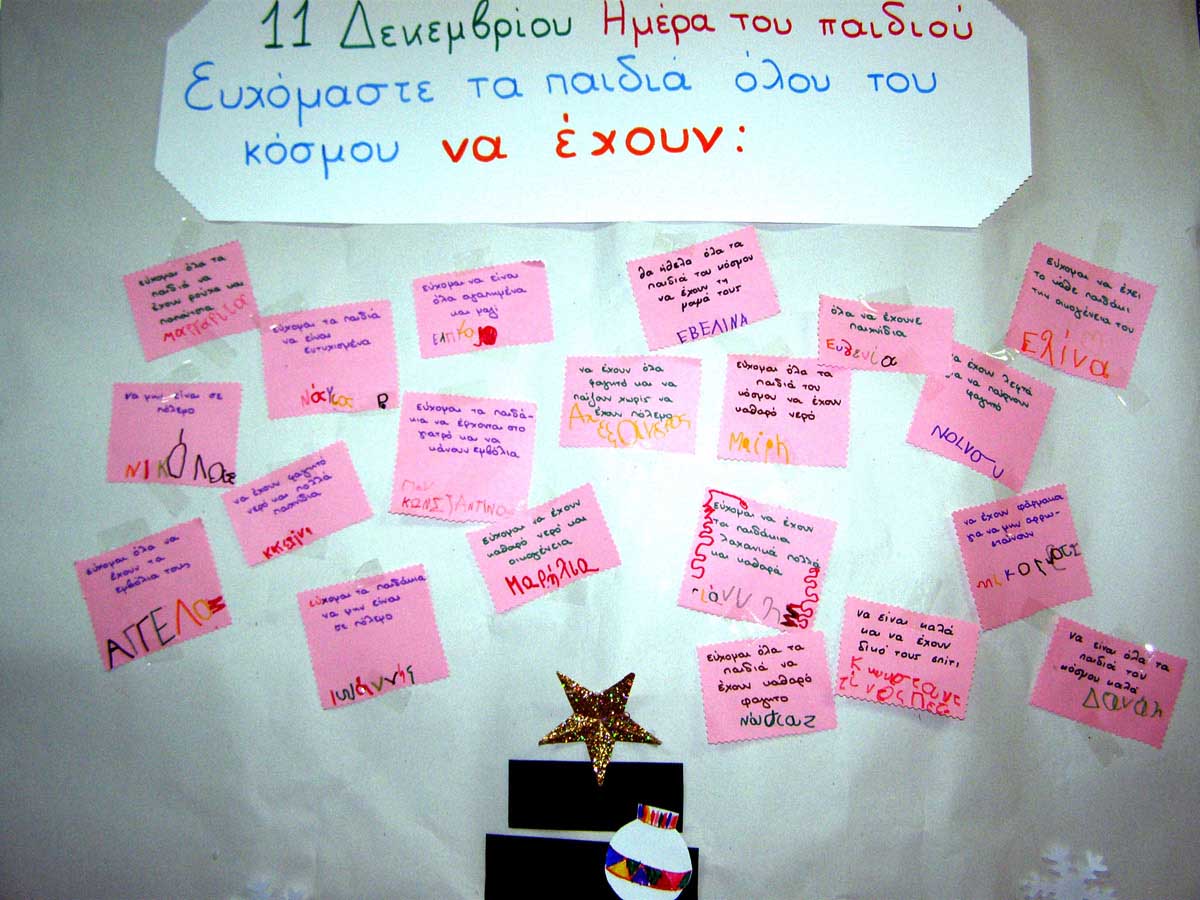 11 Δεκεμβρίου Ημέρα του παιδιού
Ευχόμαστε τα παιδιά όλου του
κόσμου να έχουν:
εύχομαι όλα τα
παιδιά να
έχουν ρούχα και
παπούτσια
Μαργαρίτα
εύχομαι τα παιδιά
να είναι
ευτυχισμένα
Β
εύχομαι να είναι
όλα αγαπημένα
και μαζί
θα ήθελα όλα τα
παιδιά του κόσμου
να έχουν τη
μαμά τους
ΕΒΕΛΙΝΑ
όλα να έχουνε
παιχνίδια
Ευγενία
εύχομαι να έχει
το κάθε παιδάκι
την οικογένεια του
Ελίνα
να μην είναι σε
πόλεμο
ΝΙΚόλας
εύχομαι τα παιδά-
κια να έρχονται στο
γιατρό και να
κάνουν εμβόλια
ΚΩΝΣΤΑΝΤΙΝΟ
να έχουν όλα
φαγητό και να
παίζουν χωρίς να
έχουν πόλεμο
εύχομαι όλα τα
παιδιά του
κόσμου να έχουν
καθαρό νερό
Μαίρη
να έχουν λεφτά
για να παίρνουν
φαγητό
ΝΟΙΝΟΥ
να έχουν φαγητό
νερό και πολλά
παιχνίδια
εύχομαι να έχουν
καθαρό νερό και
οικογένεια
Μαρήλια
εύχομαι να έχουν
τα παιδάκια
λαχανικά πολλά
και καθαρά
Γιάννης
να έχουν φάρμακα
για να μην αρρω-
σταίνουν
εύχομαι όλα να
έχουν τα
εμβόλια τους
ΑΓΓΕΛΟΣ
εύχομαι τα παιδάκια
να μην είναι
σε πόλεμο
Ιωάννής
εύχομαι όλα τα
παιδιά να
έχουν καθαρό
φαγητό
να είναι καλά
και να έχουν
δικό τους σπίτι
Κωνσταντ
ίνος Πετ
να είναι όλα τα
παιδιά του
κόσμου καλά
Δανάη